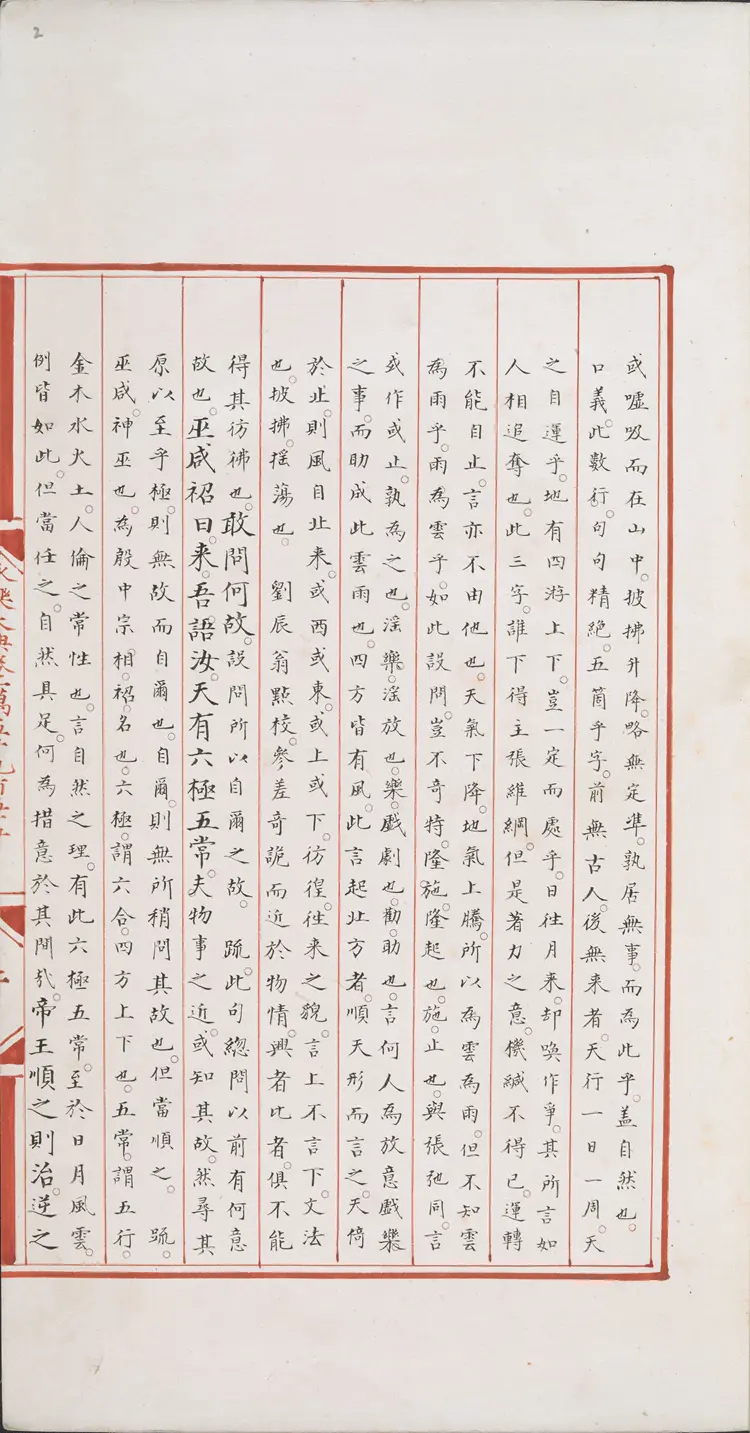 2
或噓吸而在山中。披拂升降。略無定準。孰居無事。而為此乎。盖自然也。
口義。此數行。句句精絶。五箇乎字。前無古人。後無来者。天行一日一周。天
之自運乎。地有四游上下。豈一定而處乎。日徃月来。却喚作爭。其所言如
人相追奪也。此三字。誰下得主張維綱。但是著力之意。機緘不得已。運轉
不能自止。言亦不由他也。天氣下降。地氣上騰。所以為雲為雨。但不知雲
為雨乎。雨為雲乎。如此設問。豈不奇特。隆施。隆起也。施。止也。與張弛同。言
或作或止。孰為之也。淫樂。淫放也。樂。戲劇也。勸。助也。言何人為放意戲樂
之事。而助成此雲雨也。四方皆有風。此言起北方者。順天形而言之。天倚
於北。則風自北来。或西或東。或上或下。彷徨。徃来之貌。言上不言下。文法
也。披拂。揺蕩也。 劉辰翁點校。參差奇詭而近於物情。興者比者。俱不能
得其彷彿也。敢問何故。設問所以自爾之故。 䟽。此句緫問以前有何意
故也。巫咸袑曰。来。吾語汝。天有六極五常。夫物事之近。或知其故。然尋其
原以至乎極。則無故而自爾也。自爾。則無所稍問其故也。但當順之。 䟽。
巫咸。神巫也。為殷中宗相。袑。名也。六極。謂六合。四方上下也。五常。謂五行。
金木水火土。人倫之常性也。言自然之理。有此六極五常。至於日月風雲。
例皆如此。但當任之。自然具足。何為措意於其間㢤。帝王順之則治。逆之